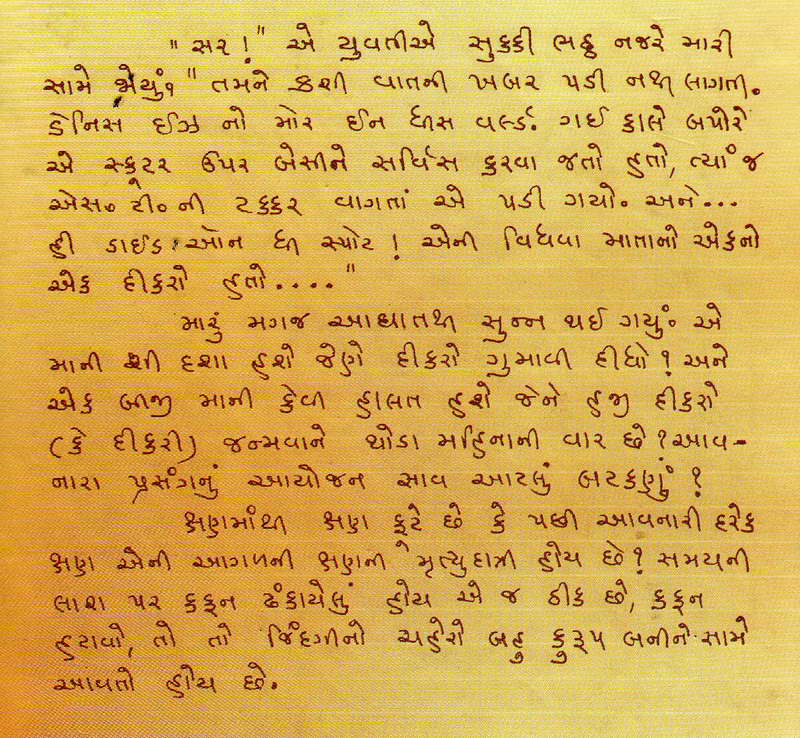 "સર!" એ યુવતીએ સુક્કી ભઠ્ઠ નજરે મારી
સામે જોયું? "તમને કશી વાતની ખબર પડી નથી લાગતી.
ડેનિસ ઈઝ નો મોર ઈન ધીસ વર્લ્ડ. ગઈ કાલે બપોરે
એ સ્કુટર ઉપર બેસીને સર્વિસ કરવા જતો હતો, ત્યાં જ
એસ૦ ટી૦ ની ટક્કર વાગતાં એ પડી ગયો. અને...
હી ડાઈડ ઑન ધી સ્પોટ! એની વિધવા માતાનો એકનો
એક દીકરો હતો...."
મારું મગજ આઘાતથી સુન્ન થઈ ગયું. એ
માની શી દશા હશે જેણે દીકરો ગુમાવી દીધો? અને
એક બીજી માની કેવી હાલત હશે જેને હજી દીકરો
(કે દીકરી) જન્મવાને થોડા મહિનાની વાર છે? આવ-
નારા પ્રસંગનું આયોજન સાવ આટલું બટકણું?
ક્ષણમાંથી ક્ષણ ફૂટે છે કે પછી આવનારી દરેક
ક્ષણ એની આગળની ક્ષણની મૃત્યુદાત્રી હોય છે? સમયની
લાશ પર કફન ઢંકાયેલું હોય એ જ ઠીક છે, કફન
હટાવો, તો તો જિંદગીનો ચહેરો બહુ કુરૂપ બનીને સામે
આવતો હોય છે.